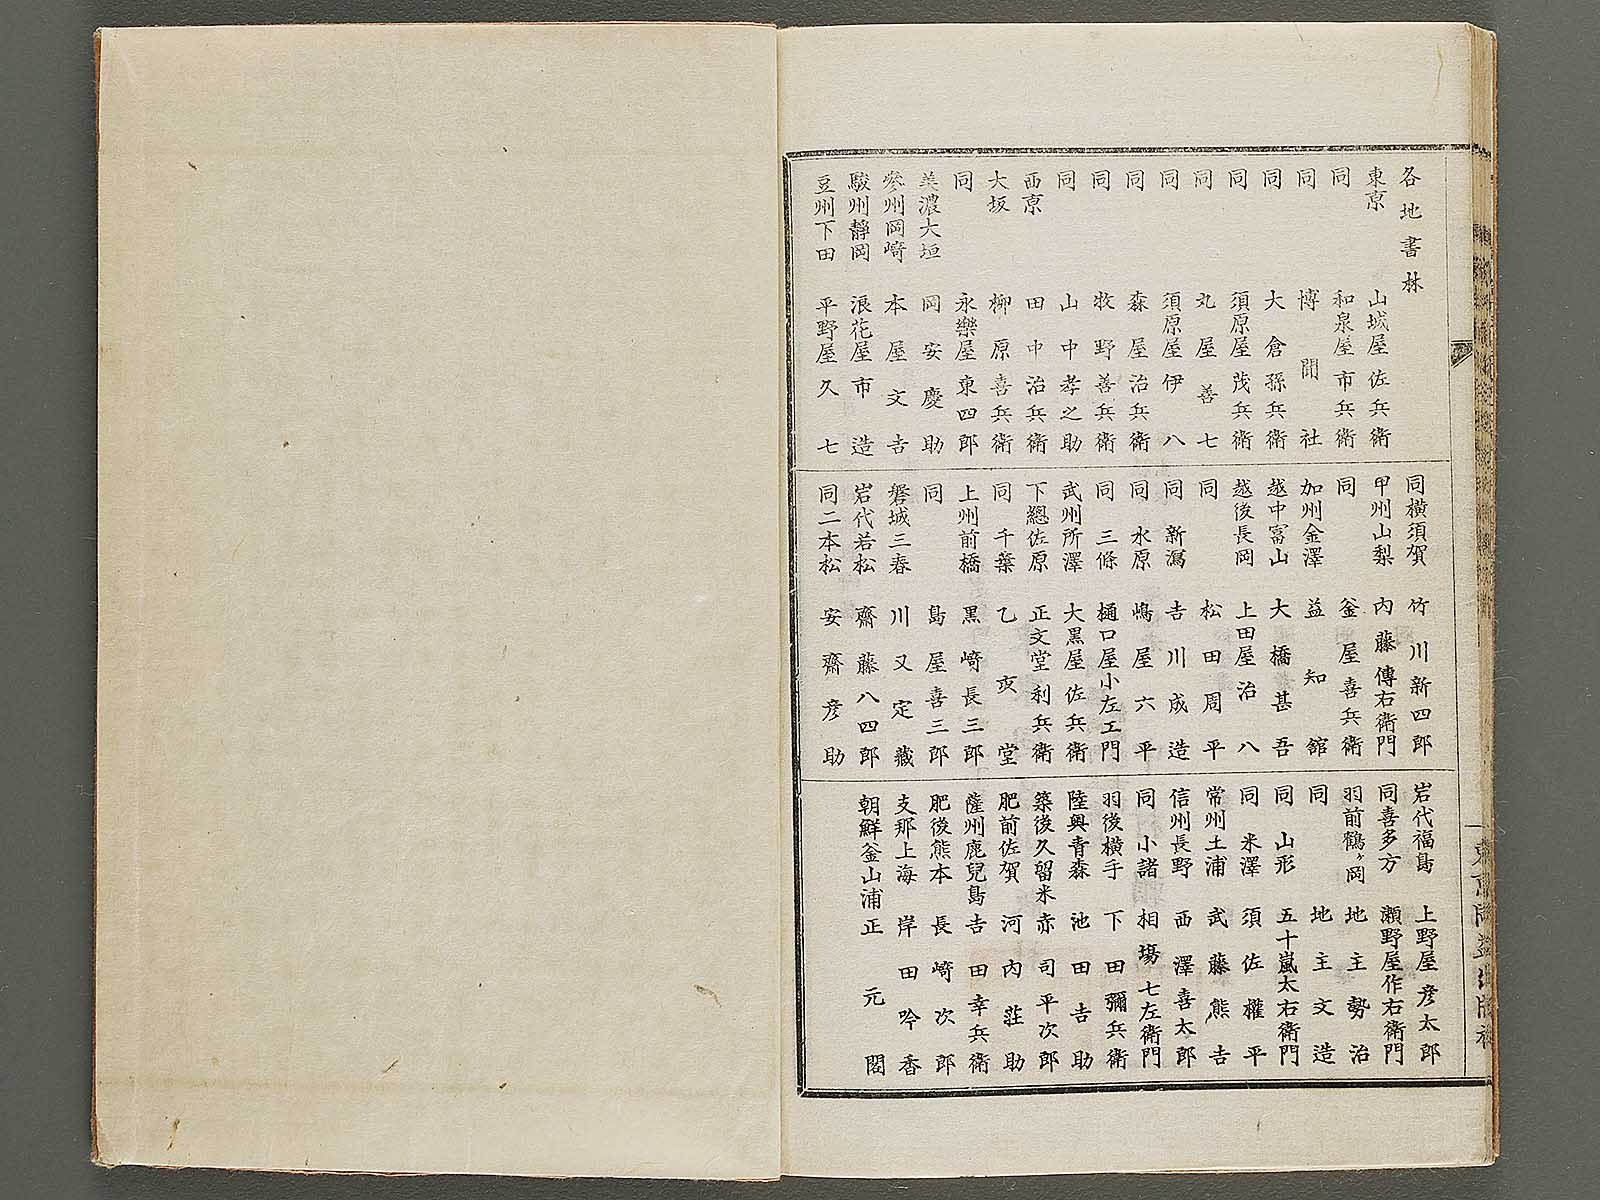 各地書林
東京 山城屋佐兵衛
同 和泉屋市兵衛
同 博聞社
同 大倉孫兵衛
同 須原屋茂兵衛
同 丸屋善七
同 須原屋伊八
同 森屋治兵衛
同 牧野善兵衛
同 山中孝之助
西京 田中治兵衛
大坂 柳原喜兵衛
同 永樂屋東四郎
美濃大垣 岡安慶助
參州岡﨑 本屋文吉
駿州靜岡 浪花屋市造
豆州下田 平野屋久七
同橫須賀 竹川新四郎
甲州山梨 內藤傳右衛門
同 釜屋喜兵衛
加州金澤 益知館
越中富山 大橋甚吾
越後長岡 上田屋治八
同 松田周平
同新潟 吉川成造
同水原 嶋屋六平
同三條 樋口屋小左エ門
武州所澤 大黒屋佐兵衛
下總佐原 正文堂利兵衛
同千葉 乙亥堂
上州前橋 黒﨑長三郎
同 島屋喜三郎
磐城三春 川又定藏
岩代若松 齋藤八四郎
同二本松 安齋彦助
岩代福島 上野屋彦太郎
同喜多方 瀨野屋作右衛門
羽前鶴ヶ岡 地主勢治
同 地主文造
同山形 五十嵐太右衛門
同米澤 須佐權平
常州土浦 武藤熊吉
信州長野 西澤喜太郎
同小諸 相場七左衛門
羽後橫手 下田彌兵衛
陸奥青森 池田吉助
築後久留米 赤司平次郎
肥前佐賀 河內荘助
薩州鹿兒島 吉田幸兵衛
肥後熊本 長﨑次郎
支那上海 岸田吟香
朝鮮釜山浦 正元閣